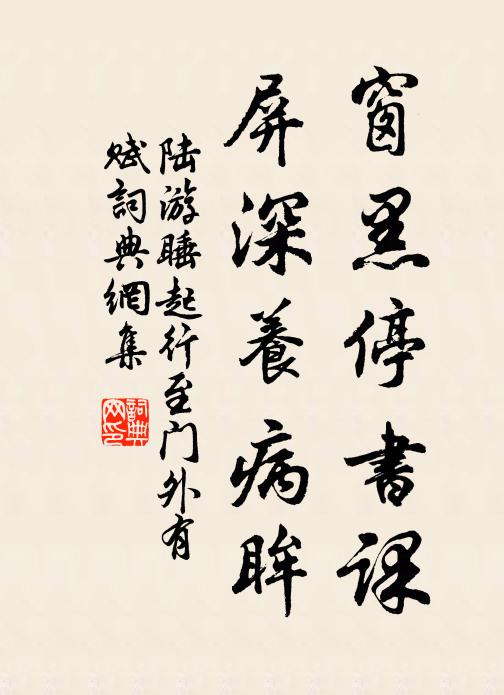 窗黑停书课
屏深養病眸
陆游睡起行至门外有
赋詞典網集
詞典
网印